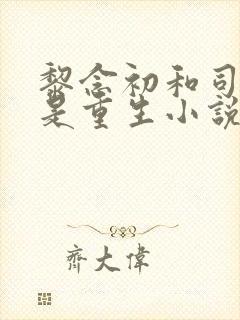 黎念初和司
是重生小說
齊大偉